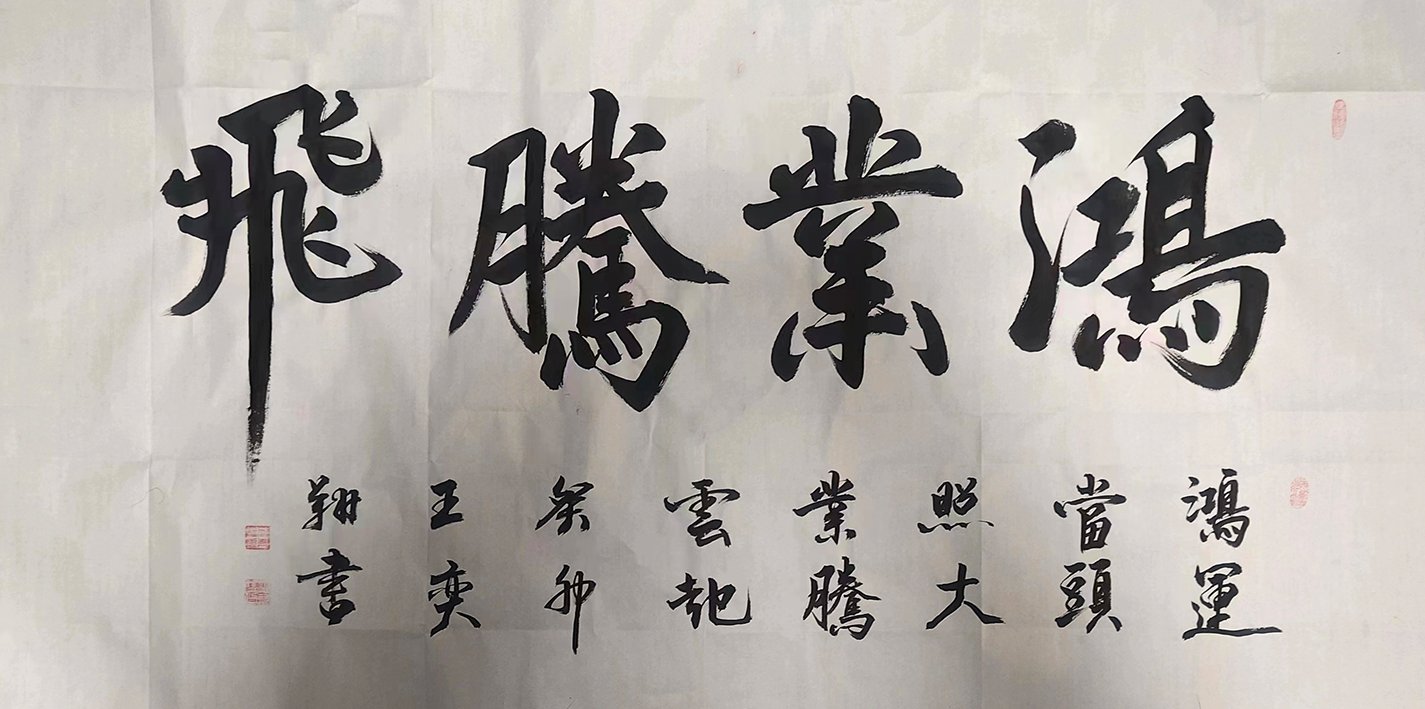 鴻業騰飛
鴻運
當頭
照大
業騰
雲起
癸卯
王奕
翔書